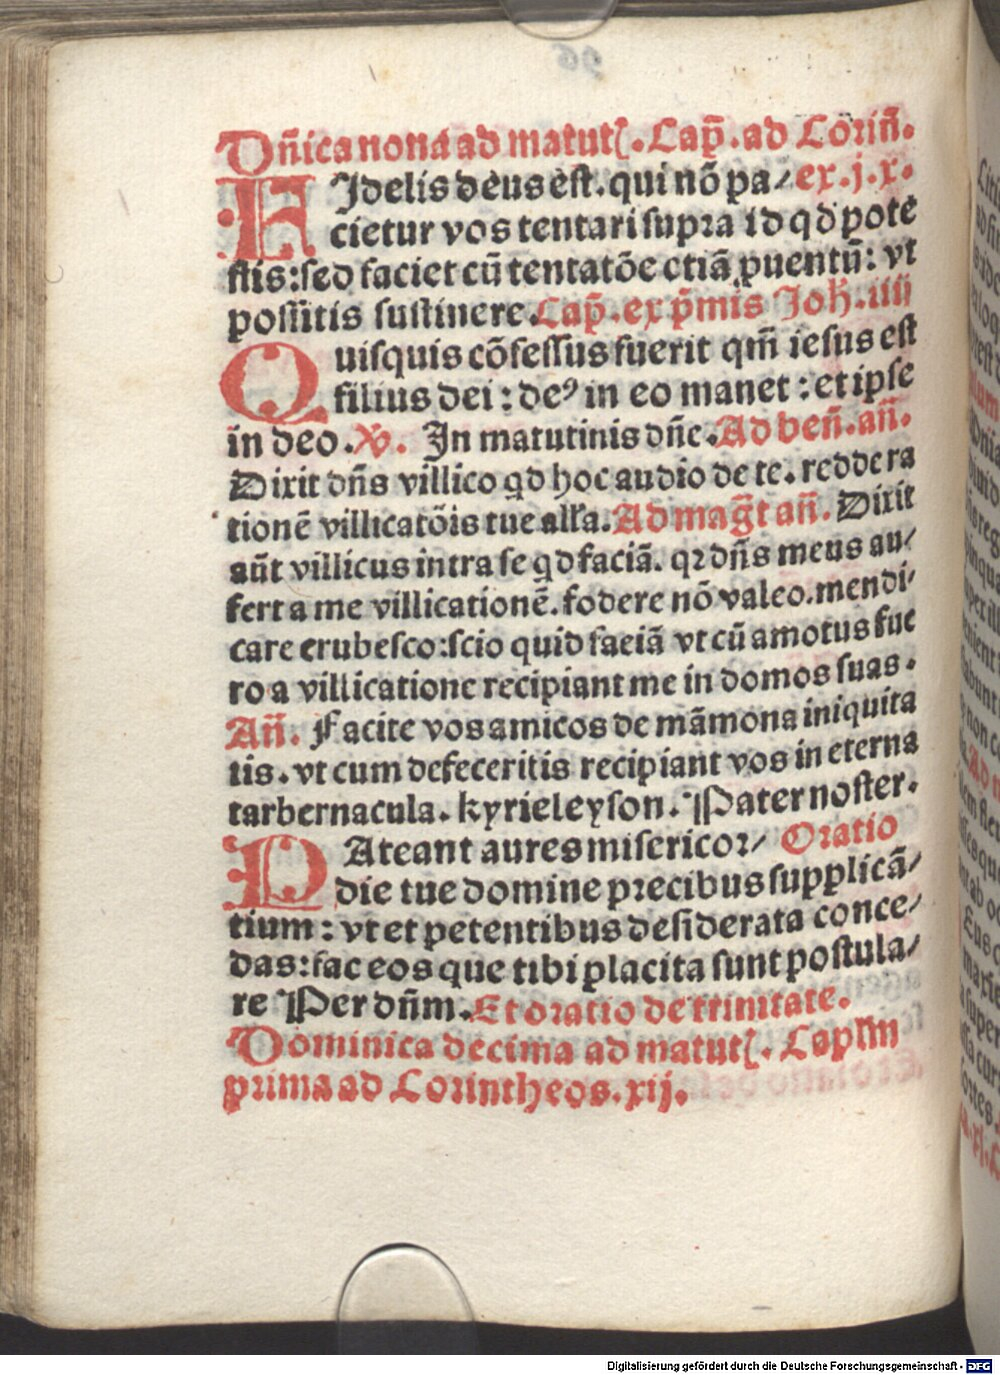 Dn̄ica nona ad matutꝭ. Cap̄. ad Corin̄.
FIdelis deus est. qui nō pa/ ex. j. x.
cietur vos tentari supra id qd pote
stis: sed faciet cū tentatōe etiā ꝓuentū: vt
possitis sustinere. Cap̄. ex p̄mis Joh̄. iiij
Quisquis cōfessus fuerit qm̄ iesus est
filius dei: deꝰ in eo manet: et ipse
in deo. ꝟ. In matutinis dn̄e. Ad ben̄. an̄.
Dixit dn̄s villico qd hoc audio de te. redde ra
tionē villicatōis tue alla. Ad maḡt an̄. Dixit
aūt villicus intra se qd faciā. qꝛ dn̄s meus au/
fert a me villicationē. fodere nō valeo. mendi/
care erubesco: scio quid faciā vt cū amotus fue
ro a villicatione recipiant me in domos suas.
An̄. Facite vos amicos de māmona iniquita
tis. vt cum defeceritis recipiant vos in eterna
tarbernacula. kyrieleyson. Pater noster.
PAteant aures misericor/ Oratio
die tue domine precibus supplicā/
tium: vt et petentibus desiderata conce/
das: fac eos que tibi placita sunt postula/
re Per dn̄m. Et oratio de trinitate.
Dominica decima ad matutꝭ. Caplm̄
prima ad Corintheos. xij.
Digitalisierung gefördert durch die Deutsche Forschungsgemeinschaft - DFG